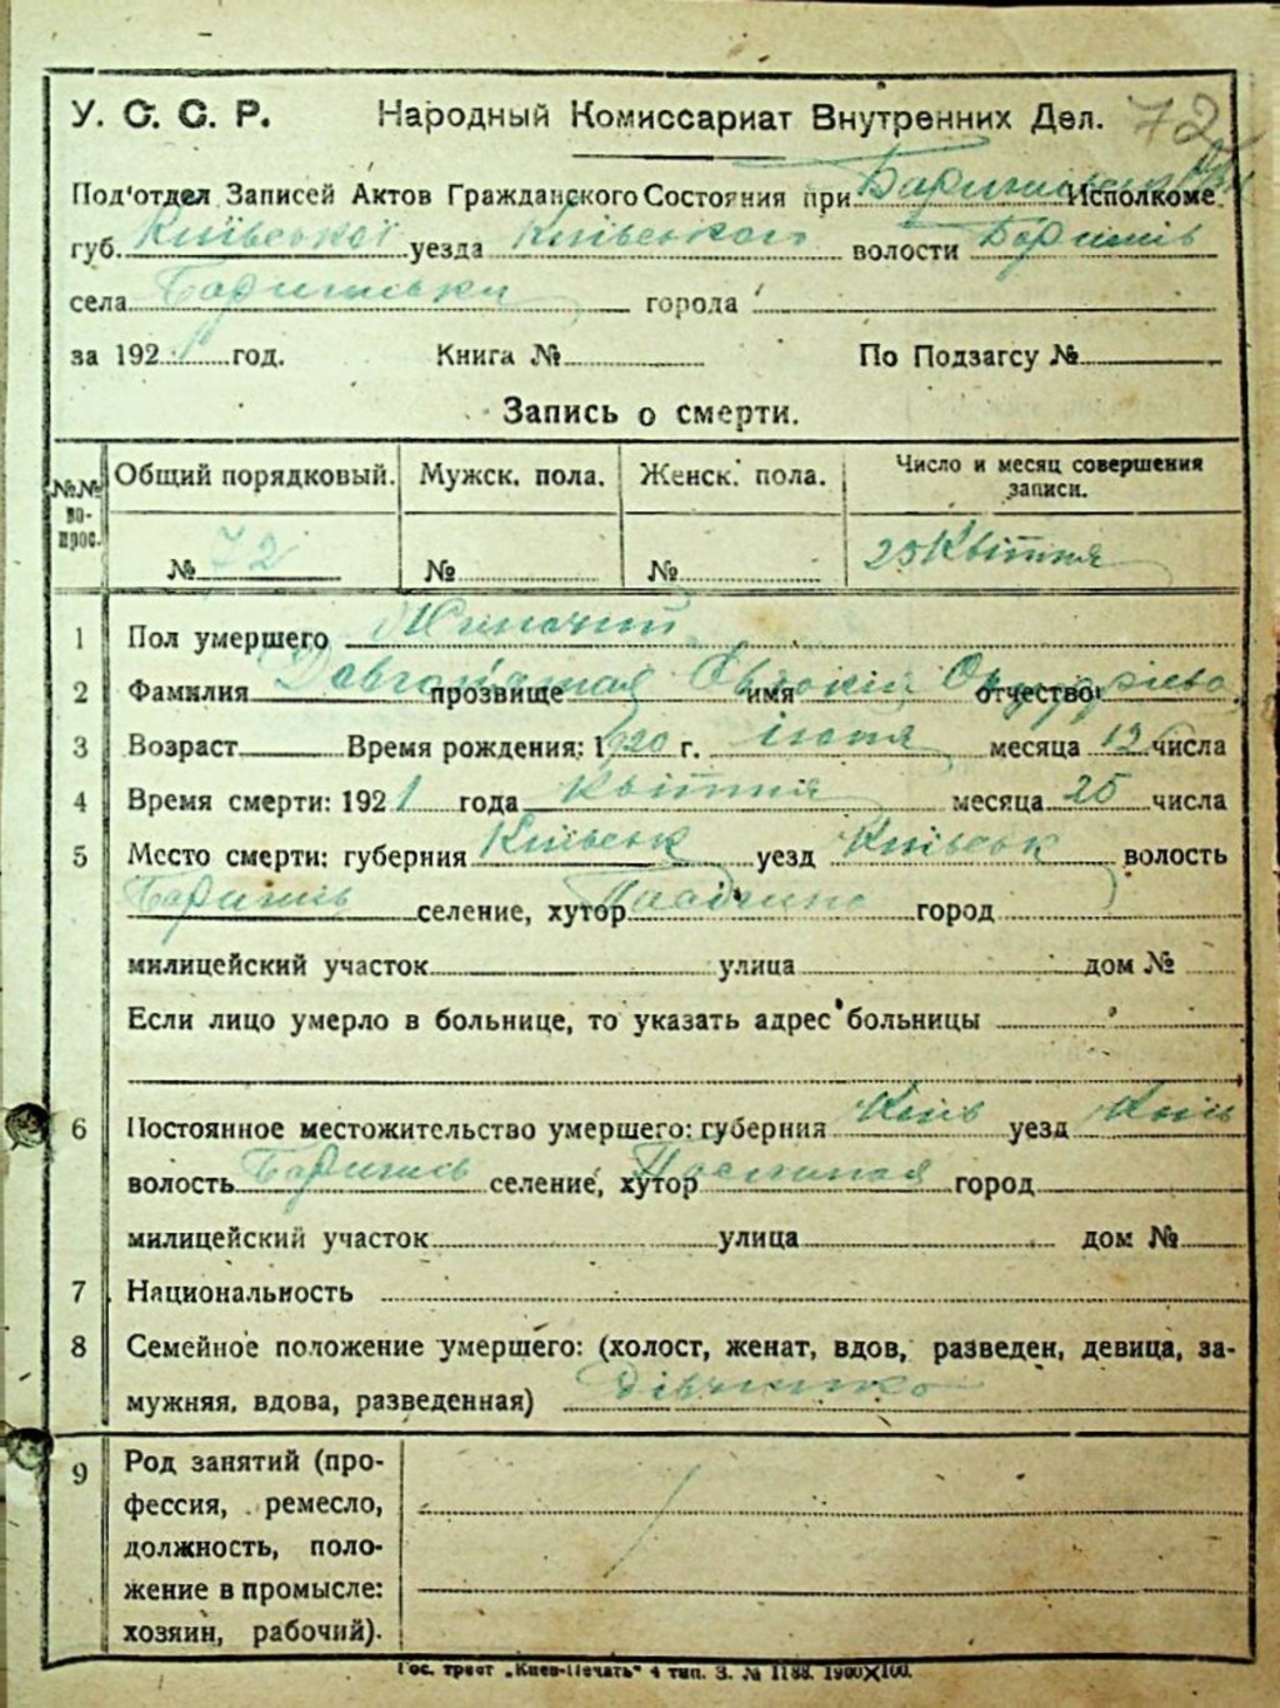 72
У. С. С. Р. Народный Комиссариат Внутренних Дел.
Под'отдел Записей Актов Гражданского Состояния при Исполкоме.
губ. Київської уезда Київського волости Баришів
села Баришівки города
за 1921 год. Книга № По Подзагсу №
Запись о смерти.
№№ во-прос. Общий порядковый. Мужск. пола. Женск. пола. Число и месяц совершения записи.
№ 72 № № 25 Квітня
1 Пол умершего Жиночий
2 Фамилия прозвище имя отчество
3 Возраст Время рождения: 1920 г. месяца числа
4 Время смерти: 1921 года Квітня месяца 25 числа
5 Место смерти: губерния Київськ уезд Київськ волость
Баришів селение, хутор город
милицейский участок улица дом №
Если лицо умерло в больнице, то указать адрес больницы
6 Постоянное местожительство умершего: губерния Київ уезд Київ
волость Баришів селение, хутор город
милицейский участок улица дом №
7 Национальность
8 Семейное положение умершего: (холост, женат, вдов, разведен, девица, за-
мужняя, вдова, разведенная) Дівчинка
9 Род занятий (про-
фессия, ремесло,
должность, поло-
жение в промысле:
хозяин, рабочий).
Гос. трест „Киев-Печать" 4 тип. З. № 1188. 1900Х100.